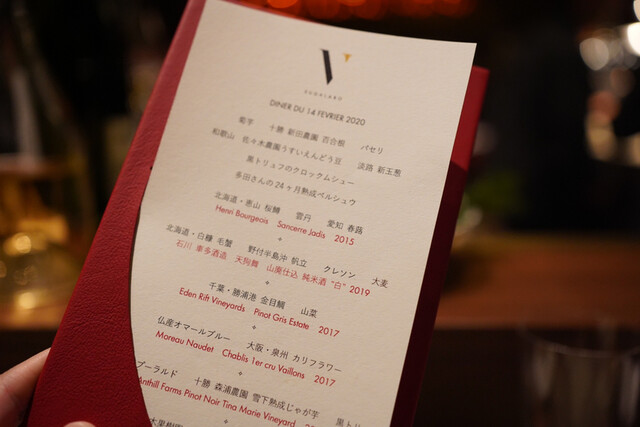 V
SUGALABO
DINER DU 14 FEVRIER 2020
菊芋 十勝 新田農園 百合根 パセリ
和歌山 佐々木農園うすいえんどう豆 淡路 新玉葱
黒トリュフのクロックムシュー
多田さんの24ヶ月熟成ペルシュウ
北海道・恵山 桜鱒 雲丹 愛知 春蕗
Henri Bourgeois Sancerre Jadis 2015
+
北海道・白糠 毛蟹 野付半島沖 帆立 クレソン 大麦
石川 車多酒造 天狗舞 山廃仕込 純米酒 "白" 2019
+
千葉・勝浦港 金目鯛 山菜
Eden Rift Vineyards Pinot Gris Estate 2017
+
仏産オマールブルー 大阪・泉州 カリフラワー
Moreau Naudet Chablis 1er cru Vaillons 2017
+
プーラルド 十勝 森浦農園 雪下熟成じゃが芋 黒トリ
Anthill Farms Pinot Noir Tina Marie Vineyard 20